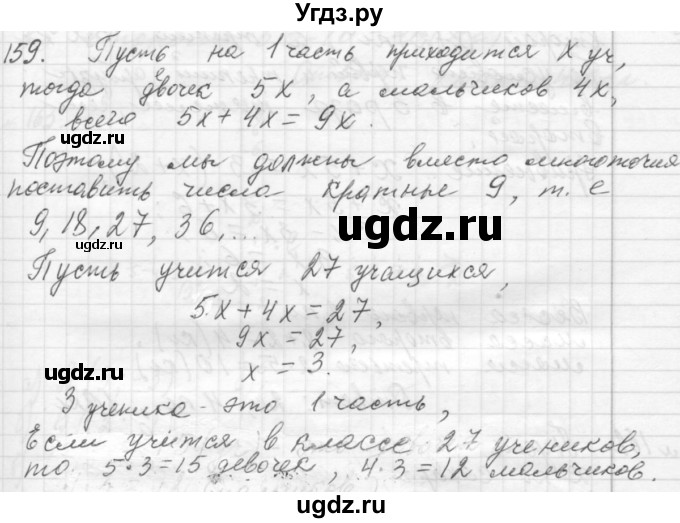 Угдз.ру
159. Пусть на 1 часть приходится x уч,
тогда девочек 5x, а мальчиков 4x,
всего 5x + 4x = 9x.
Поэтому мы должны вместо многоточия
поставить числа кратные 9, т. е
9, 18, 27, 36, ...
ugdz.ru
Пусть учится 27 учащихся,
5·x + 4x = 27,
9x = 27,
ugdz.ru
ugdz.ru
x = 3.
3 ученика - это 1 часть,
Если учится в классе 27 учеников,
то 5·3 = 15 девочек, 4·3 = 12 мальчиков.
ugdz.ru
ugdz.ru